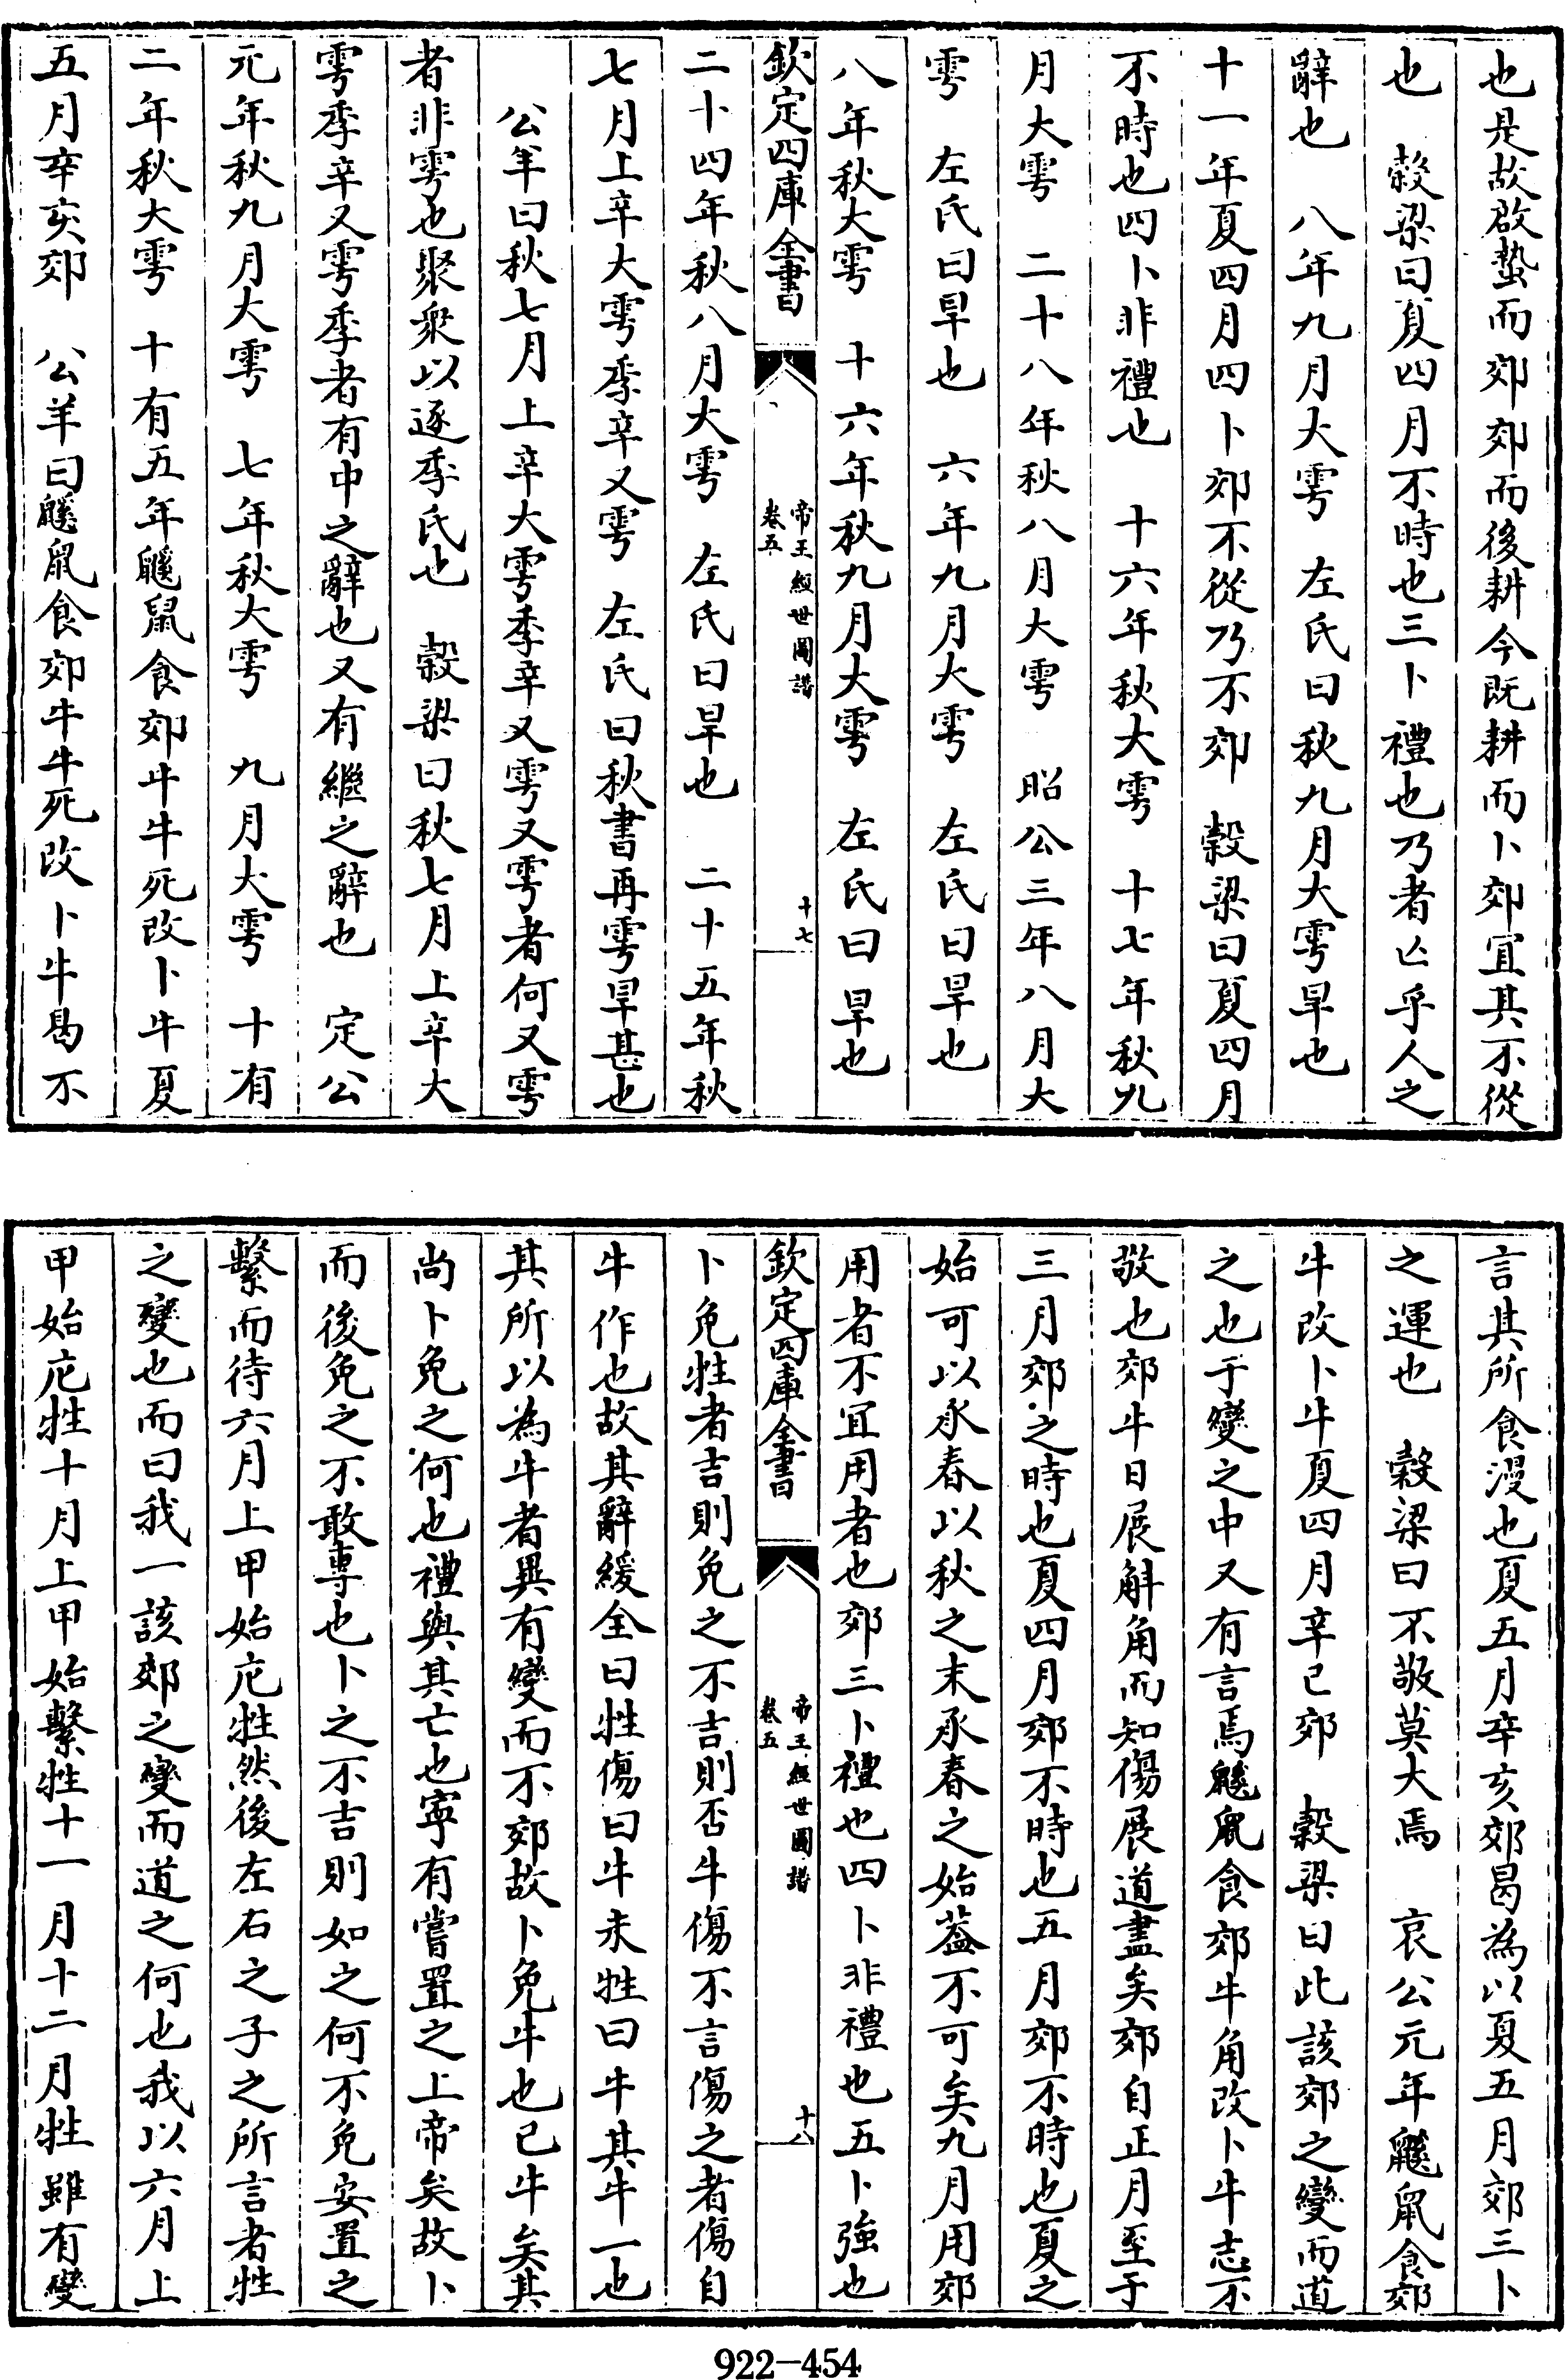 也是故啟蟄而郊郊而後耕今既耕而卜郊宜其不從
也　穀梁曰夏四月不時也三卜禮也乃者亡乎人之
辭也　八年九月大雩　左氏曰秋九月大雩旱也
十一年夏四月四卜郊不從乃不郊　穀梁曰夏四月
不時也四卜非禮也　十六年秋大雩　十七年秋九
月大雩　二十八年秋八月大雩　昭公三年八月大
雩　左氏曰旱也　六年九月大雩　左氏曰旱也
八年秋大雩　十六年秋九月大雩　左氏曰旱也
欽定四庫全書
帝王經世圖譜
卷五
十七
二十四年秋八月大雩　左氏曰旱也　二十五年秋
七月上辛大雩季辛又雩　左氏曰秋書再雩旱甚也
公羊曰秋七月上辛大雩季辛又雩又雩者何又雩
者非雩也聚衆以逐季氏也　穀梁曰秋七月上辛大
雩季辛又雩季者有中之辭也又有繼之辭也　定公
元年秋九月大雩　七年秋大雩　九月大雩　十有
二年秋大雩　十有五年鼷鼠食郊牛牛死改卜牛夏
五月辛亥郊　公羊曰鼷鼠食郊牛牛死改卜牛曷不
言其所食漫也夏五月辛亥郊曷為以夏五月郊三卜
之運也　穀梁曰不敬莫大焉　哀公元年鼷鼠食郊
牛改卜牛夏四月辛巳郊　穀梁曰此該郊之變而道
之也于變之中又有言焉鼷鼠食郊牛角改卜牛志不
敬也郊牛日展斛角而知傷展道盡矣郊自正月至于
三月郊之時也夏四月郊不時也五月郊不時也夏之
始可以承春以秋之末承春之始葢不可矣九月用郊
用者不宜用者也郊三卜禮也四卜非禮也五卜強也
欽定四庫全書
帝王經世圖譜
卷五
十八
卜免牲者吉則免之不吉則否牛傷不言傷之者傷自
牛作也故其辭緩全曰牲傷曰牛未牲曰牛其牛一也
其所以為牛者異有變而不郊故卜免牛也已牛矣其
尚卜免之何也禮與其亡也寧有嘗置之上帝矣故卜
而後免之不敢專也卜之不吉則如之何不免安置之
繫而待六月上甲始庀牲然後左右之子之所言者牲
之變也而曰我一該郊之變而道之何也我以六月上
甲始庀牲十月上甲始繫牲十一月十二月牲雖有變
922-454